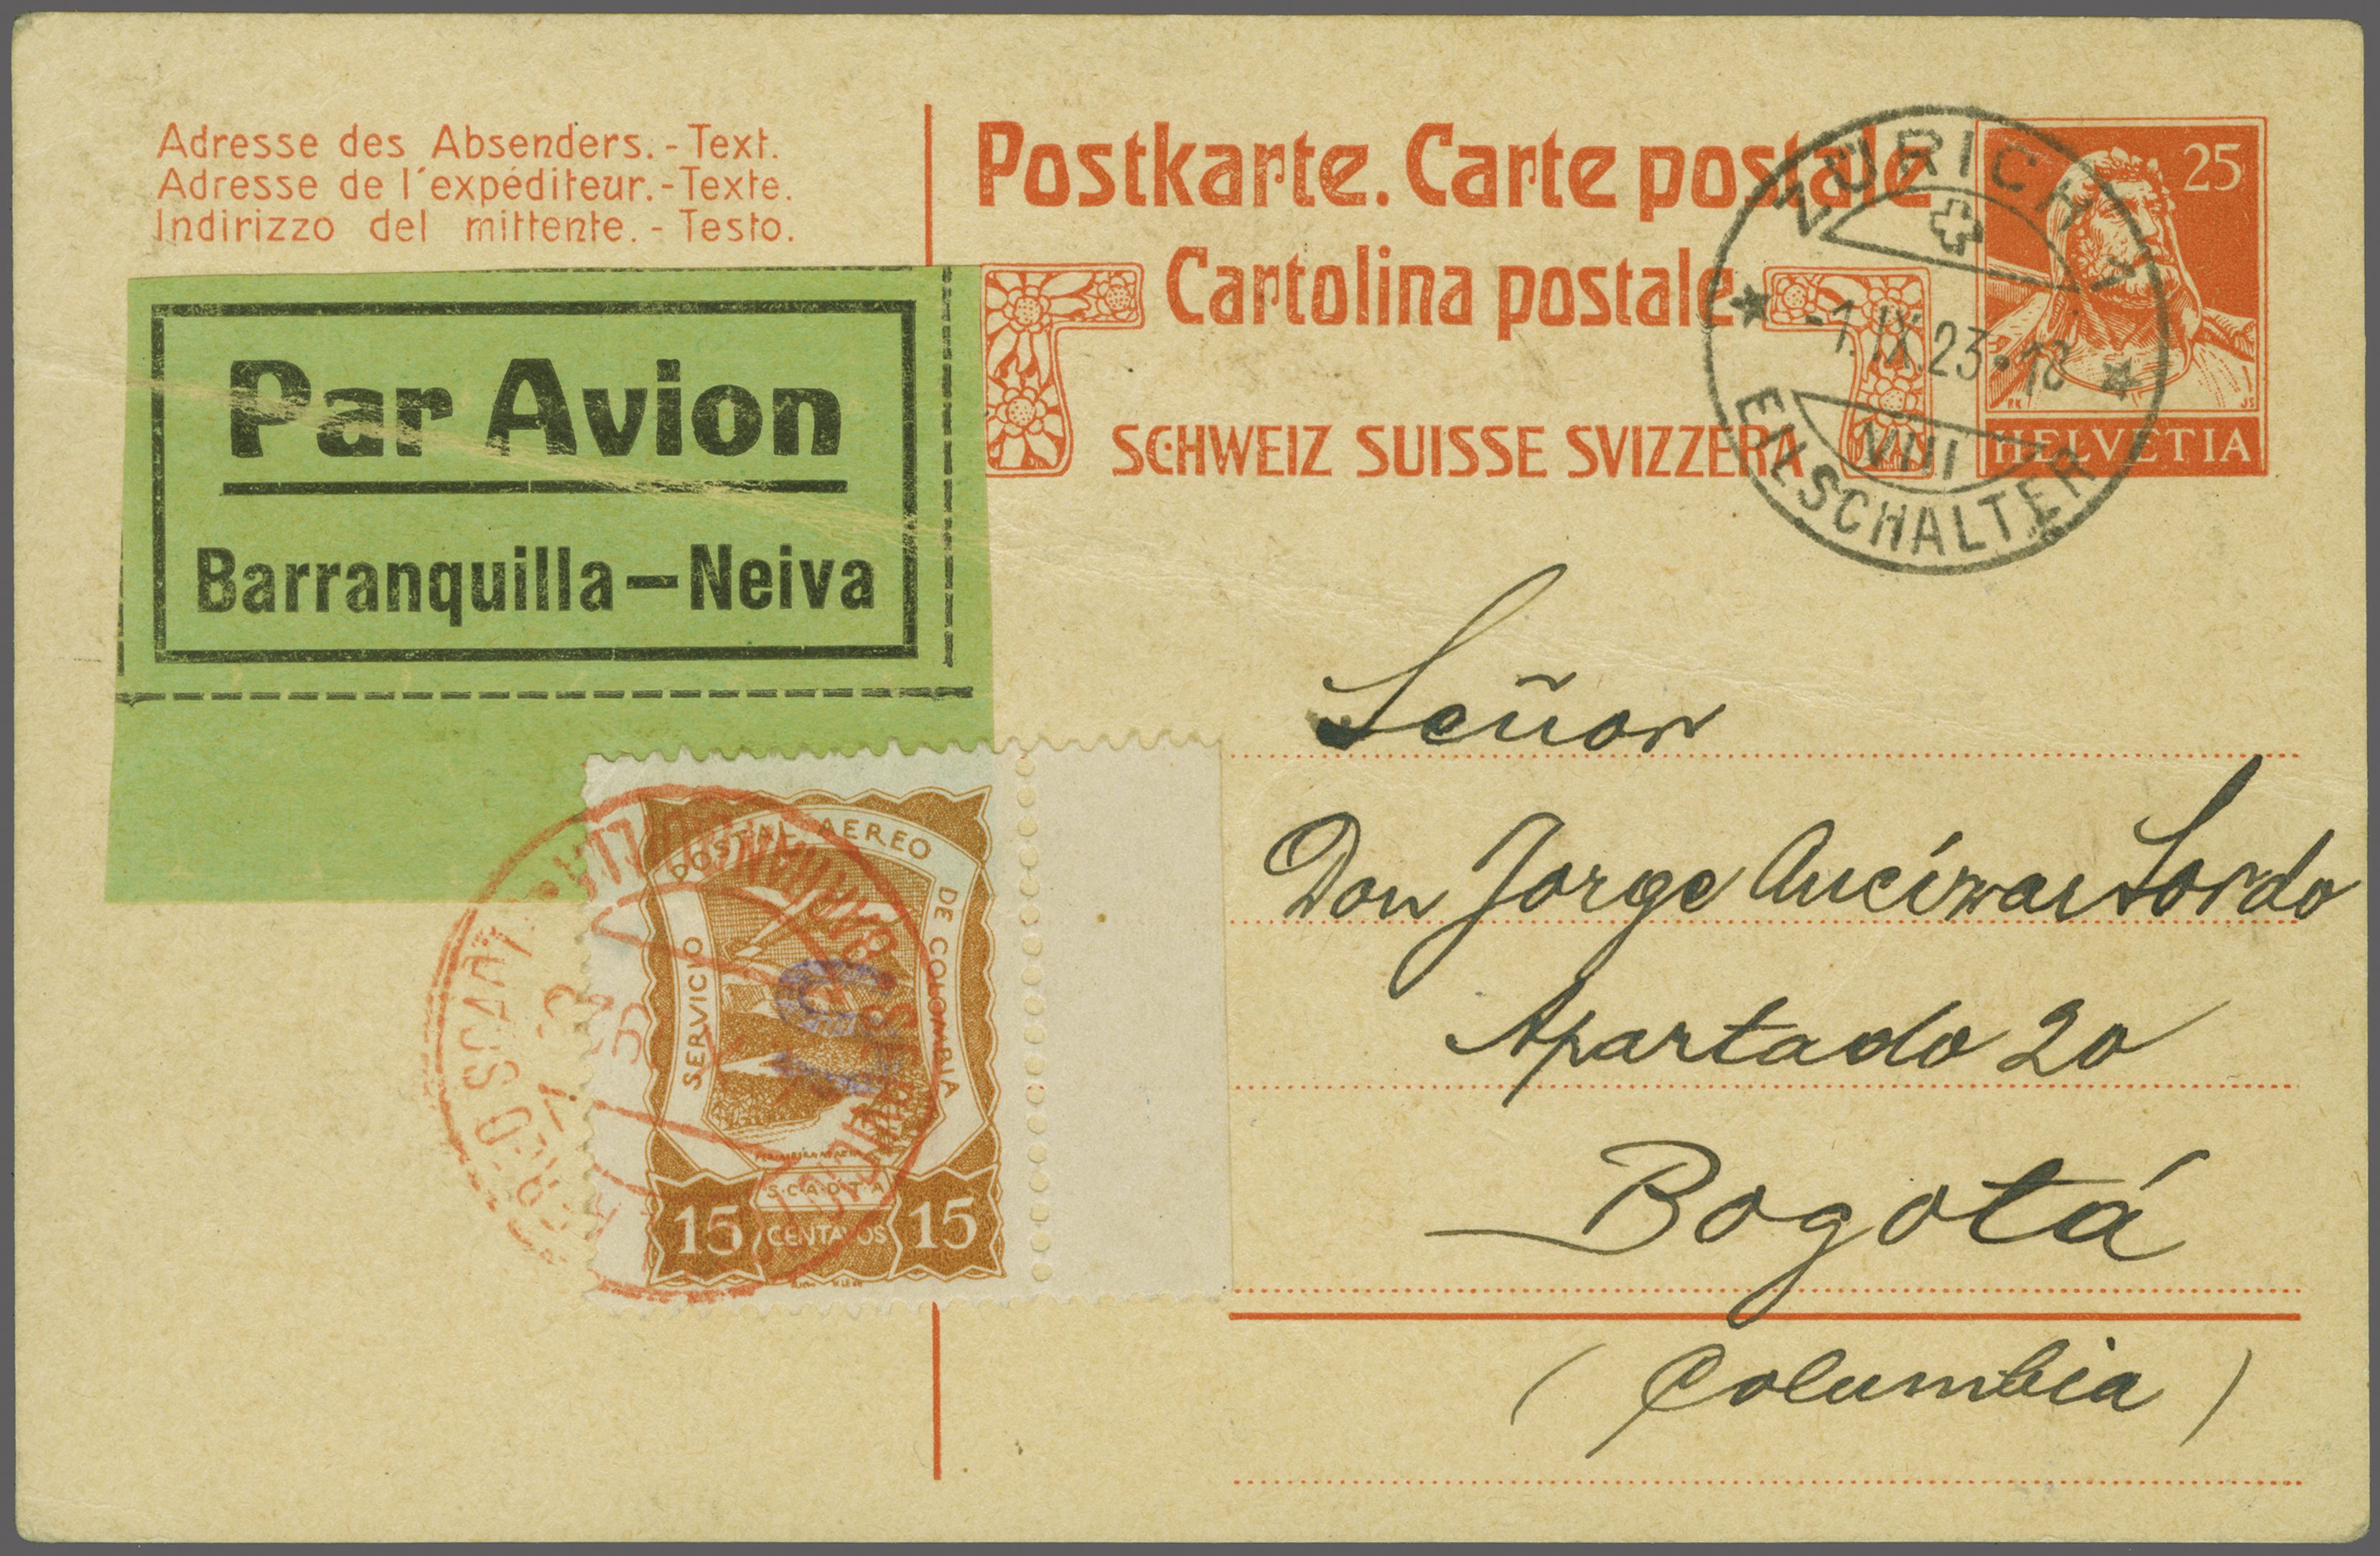 Adresse des Absenders. - Text.
Adresse de l'expéditeur. - Texte.
Indirizzo del mittente. - Testo.
Postkarte. Carte postale
Cartolina postale
SCHWEIZ SUISSE SVIZZERA
25
HELVETIA
ZÜRICH 1
-1.IX.23-18
VIII
EILSCHALTER
Par Avion
Barranquilla–Neiva
SERVICIO POSTAL AEREO DE COLOMBIA
S.C.A.D.T.A
15 CENTAVOS 15
BARRANQUILLA
Señor
Don Jorge Ancízar Sordo
Apartado 20
Bogotá
(Columbia)